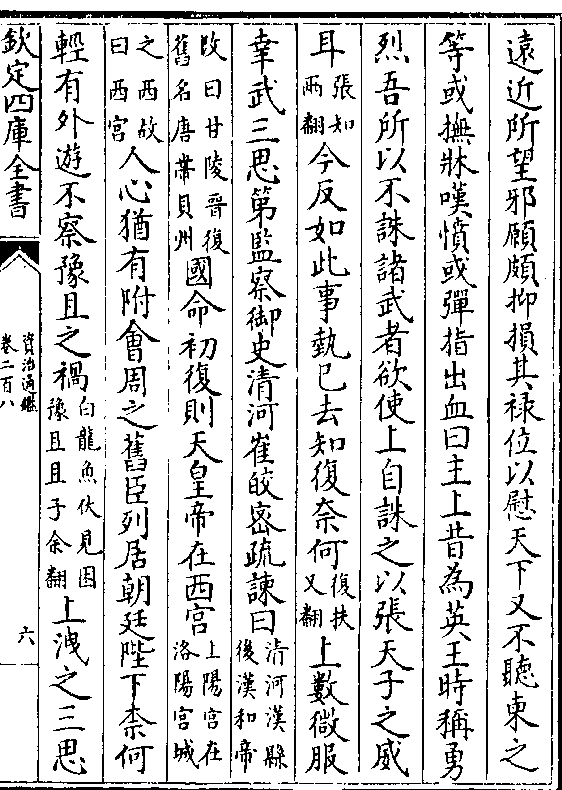 遠近所望邪願頗抑損其禄位以慰天下又不聽柬之
等或撫牀嘆憤或彈指出血曰主上昔為英王時稱勇
烈吾所以不誅諸武者欲使上自誅之以張天子之威
耳張知兩翻今反如此事埶已去知復奈何復扶又翻上數微服
幸武三思第監察御史清河崔皎宻疏諫曰清河漢縣後漢和帝
改曰甘陵晉復舊名唐帶貝州國命初復則天皇帝在西宫上陽宫在洛陽宫城
之西故曰西宫人心猶有附會周之舊臣列居朝廷陛下柰何
輕有外遊不察豫且之禍白龍魚伏見困豫且且子余翻上洩之三思
欽定四庫全書
資治通鑑
卷二百八
六